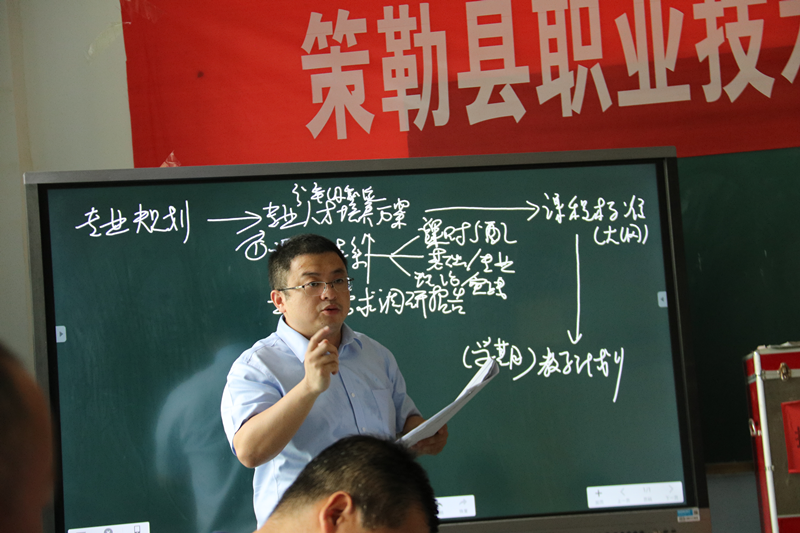 策勒县职业技
专业规划 → 专业人才培养方案 → 课程标准
(大纲)
①
课时分配
基础/专业
求调研报告
(学期) 教学计划